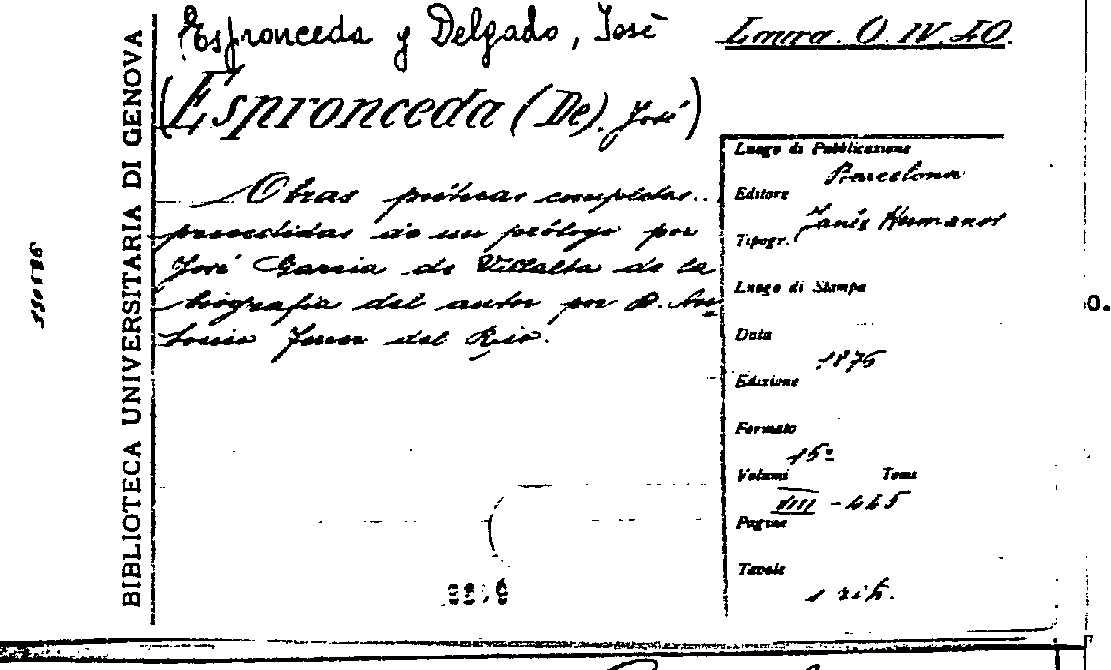 Espronceda y Delgado, José
Laura. O. IV. 10.
(Espronceda (De). José)
BIBLIOTECA UNIVERSITARIA DI GENOVA
Obras poéticas completas..
precedidas de un prólogo por
José Garcia de Villalta de la
biografia del autor por D. An
tonio Ferrer del Rio.
Luogo di Pubblicazione
Barcelona
Editore
Janés Hermanos
Tipogr.
Luogo di Stampa
Data
1876
Edizione
Formato
15º
Volumi Tomi
VIII - 445
Pagine
Tavole
1 rit.